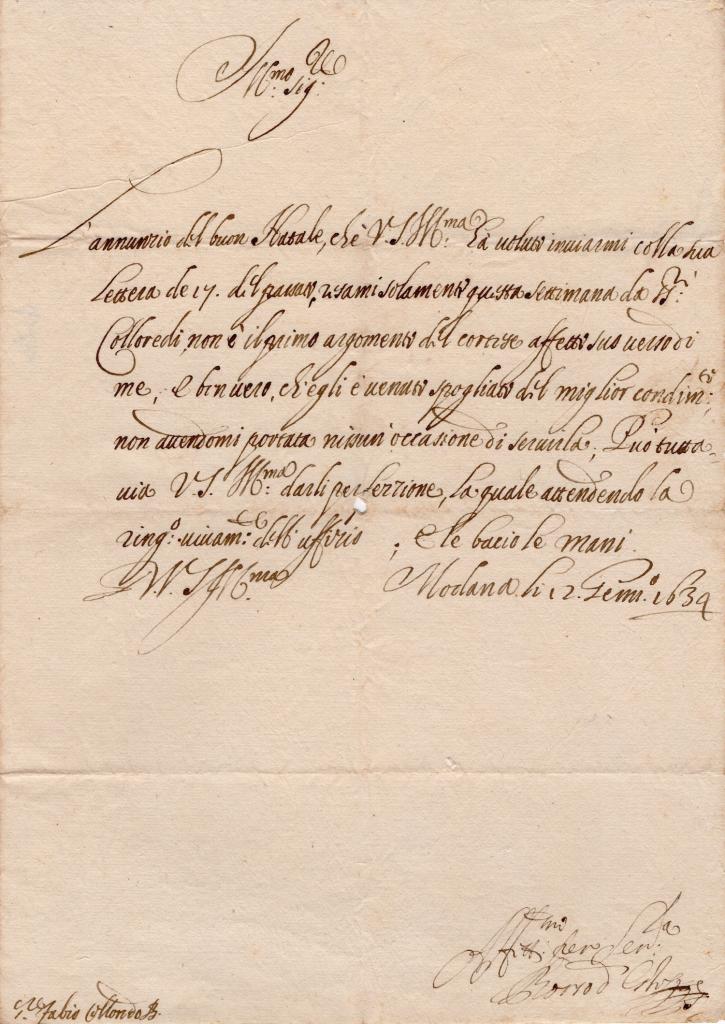 Ill.mo Sig.re
L'annunzio del buon Natale, che V. S. Ill.ma ha voluto inviarmi colla sua
lettera de 17. del passato, resami solamente questa settimana da SS.ri
Colloredi, non è il primo argomento del cortese affetto suo verso di
me, e ben vero, ch'egli è venuto spogliato del miglior condim.to
non avendomi portata nissun'occasione di servirla; Può tutta-
via V. S. Ill.ma darli perfezzione, la quale attendendo la
ring.o vivam.te dell'uffizio; e le bacio le mani.
D. V. S. Ill.ma Modana li 12. Genn.o 1634
Aff.mo
S.r Fabio